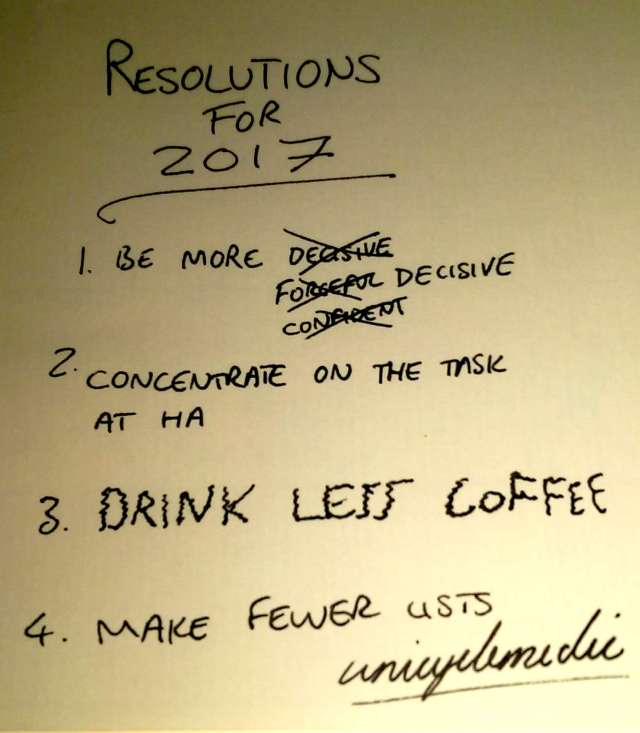 RESOLUTIONS
FOR
2017
1. BE MORE DECISIVE
FORCEFUL DECISIVE
CONFIDENT
2. CONCENTRATE ON THE TASK
AT HA
3. DRINK LESS COFFEE
4. MAKE FEWER LISTS
unicyclemedic